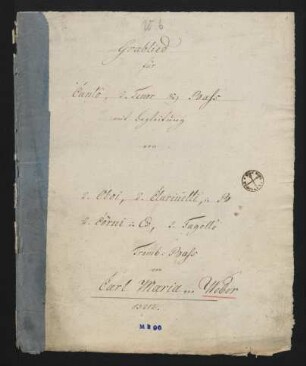 Grablied
für
Canto, 2. Tenor & Bass
mit Begleitung
von
2. Oboi, 2. Clarinetti, in B
2. Corni in Es, 2. Fagotti
Tromb. Basso
von
Carl Maria v. Weber
M B 96